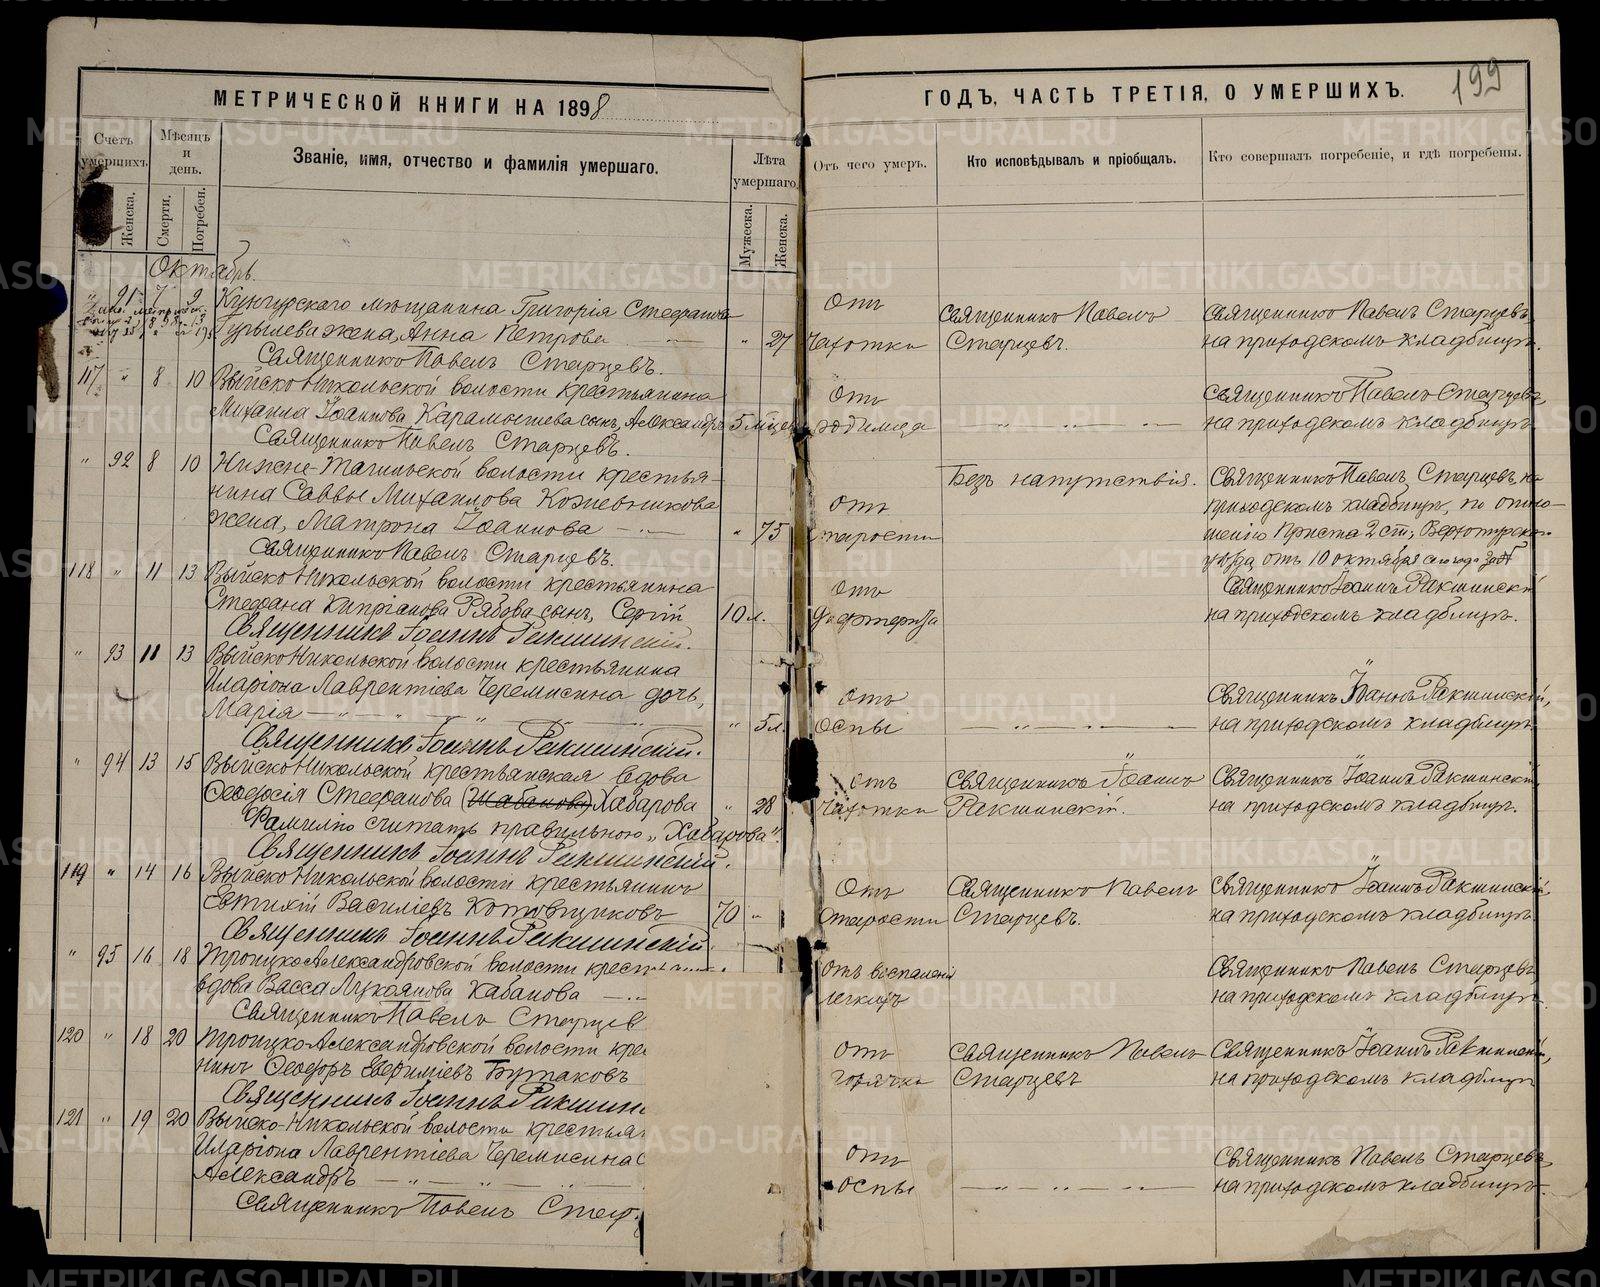 МЕТРИЧЕСКОЙ КНИГИ НА 1898
Счетъ умершихъ.
Женска.
Мѣсяцъ и день.
Смерти.
Погребен.
Званіе, имя, отчество и фамилія умершаго.
Лѣта умершаго.
Мужеска.
Женска.
Октябрь.
" 91 7 9 Кунгурскаго мѣщанина Григорія Стефанова
жена, Анна Петрова " 27
Священникъ Павелъ Старцевъ.
117 " 8 10 Выйско-Никольской волости крестьянина
Михаила Іоаннова Карамышева сынъ, Александръ 5 мѣсяц.
Священникъ Павелъ Старцевъ.
" 92 8 10 Нижне-Тагильской волости крестья-
нина Саввы Михаилова Кожевникова
жена, Матрона Іоаннова " 75
Священникъ Павелъ Старцевъ.
118 " 11 13 Выйско-Никольской волости крестьянина
Стефана Кипріанова Рябова сынъ, Сергій 10 л.
Священникъ Іоаннъ Ракшинскій.
" 93 11 13 Выйско-Никольской волости крестьянина
Иларіона Лаврентіева Черемисина дочь,
Марія " 5 л.
Священникъ Іоаннъ Ракшинскій.
" 94 13 15 Выйско-Никольской крестьянская вдова
Ѳеодосія Стефанова (Шабанова) Хабарова " 28
Фамилію считать правильною „Хабарова".
Священникъ Іоаннъ Ракшинскій.
119 " 14 16 Выйско-Никольской волости крестьянинъ
Евтихій Василіевъ Котовщиковъ 70 "
Священникъ Іоаннъ Ракшинскій.
" 95 16 18 Троицко-Александровской волости крест
вдова Васса Лукоянова Кабанова
Священникъ Павелъ Старцев
120 " 18 20 Троицко-Александровской волости кре
нинъ Ѳеодоръ Евфиміевъ Бутаковъ
Священникъ Іоаннъ Ракшин
121 " 19 20 Выйско-Никольской волости крестья
Иларіона Лаврентіева Черемисина с
Александръ
Священникъ Павелъ Стар
ГОДЪ, ЧАСТЬ ТРЕТІЯ, О УМЕРШИХЪ.
199
Отъ чего умеръ.
Кто исповѣдывалъ и пріобщалъ.
Кто совершалъ погребеніе, и гдѣ погребены.
Отъ Священникъ Павелъ Священникъ Павелъ Старцевъ,
чахотки Старцевъ. на приходскомъ кладбищѣ.
Отъ Священникъ Павелъ Старцевъ,
родимца " " на приходскомъ кладбищѣ.
Безъ напутствія. Священникъ Павелъ Старцевъ на
Отъ приходскомъ кладбищѣ, по отно-
старости шенію Пристава 2 ст. Верхотурскаго
уѣзда отъ 10 октября сего года за №
Отъ Священникъ Іоаннъ Ракшинскій
дифтерита на приходскомъ кладбищѣ.
Отъ Священникъ Іоаннъ Ракшинскій,
оспы " " на приходскомъ кладбищѣ.
Отъ Священникъ Іоаннъ Священникъ Іоаннъ Ракшинскій
чахотки Ракшинскій. на приходскомъ кладбищѣ.
Отъ Священникъ Павелъ Священникъ Іоаннъ Ракшинскій
старости Старцевъ. на приходскомъ кладбищѣ.
Отъ воспаленія Священникъ Павелъ Старцевъ,
легкихъ на приходскомъ кладбищѣ.
Отъ Священникъ Павелъ Священникъ Іоаннъ Ракшинскій,
горячки Старцевъ на приходскомъ кладбищѣ
Отъ Священникъ Павелъ Старцевъ,
оспы " " на приходскомъ кладбищѣ.
METRIKI.GASO-URAL.RU